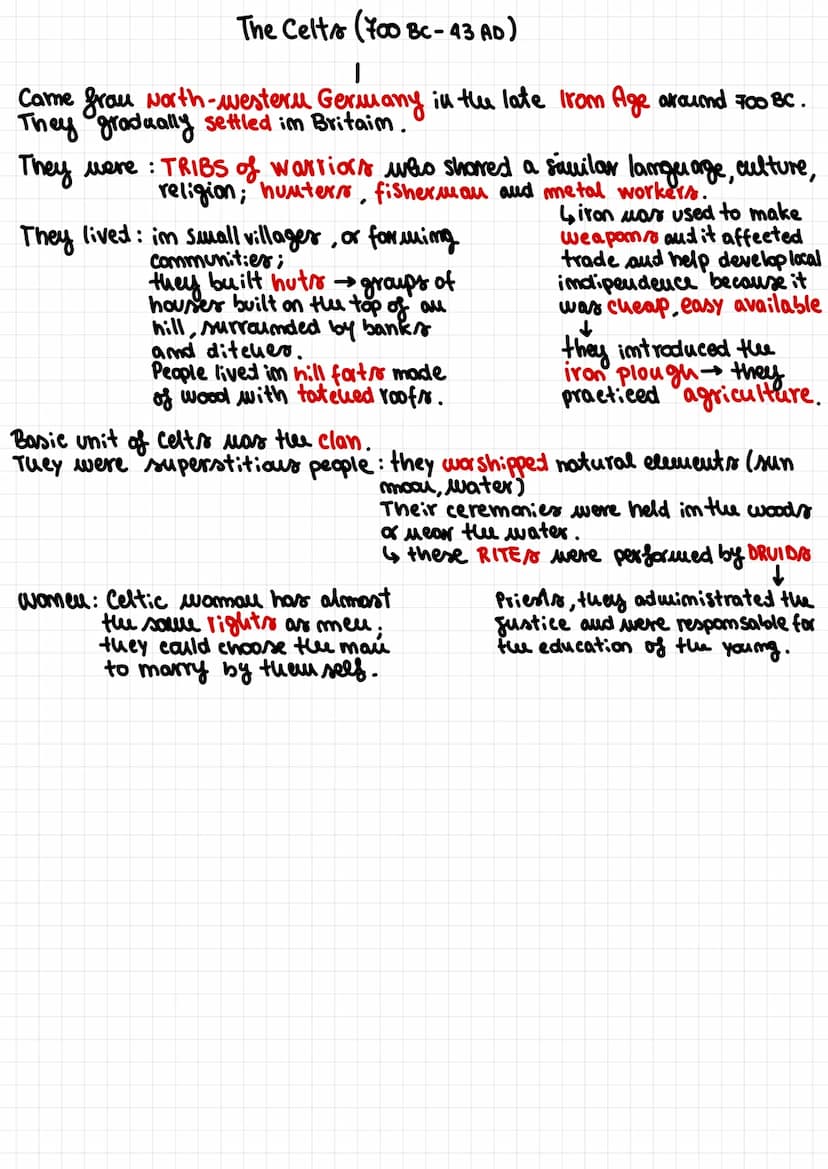 The Celts (700 BC - 43 AD)
Came from north-western Germany in the late Iron Age around 700 BC.
They gradually settled in Britain.
They were : TRIBS of warriors who shared a similar language, culture,
religion; hunters, fisherman and metal workers.
↳ iron was used to make
weapons and it affected
trade and help develop local
indipendence because it
was cheap, easy available
↓
they introduced the
iron plough → they
practiced agriculture.
They lived : in small villages, or forming
communities;
they built huts → groups of
houses built on the top of an
hill, surrounded by banks
and ditches.
People lived in hill forts made
of wood with tatched roofs.
Basic unit of Celts was the clan.
They were superstitious people : they worshipped natural elements (sun
moon, water)
Their ceremonies were held in the woods
or near the water.
↳ these RITES were performed by DRUIDS
↓
Priests, they administrated the
justice and were responsable for
the education of the young.
Women : Celtic woman has almost
the same rights as men;
they could choose the man
to marry by them self.